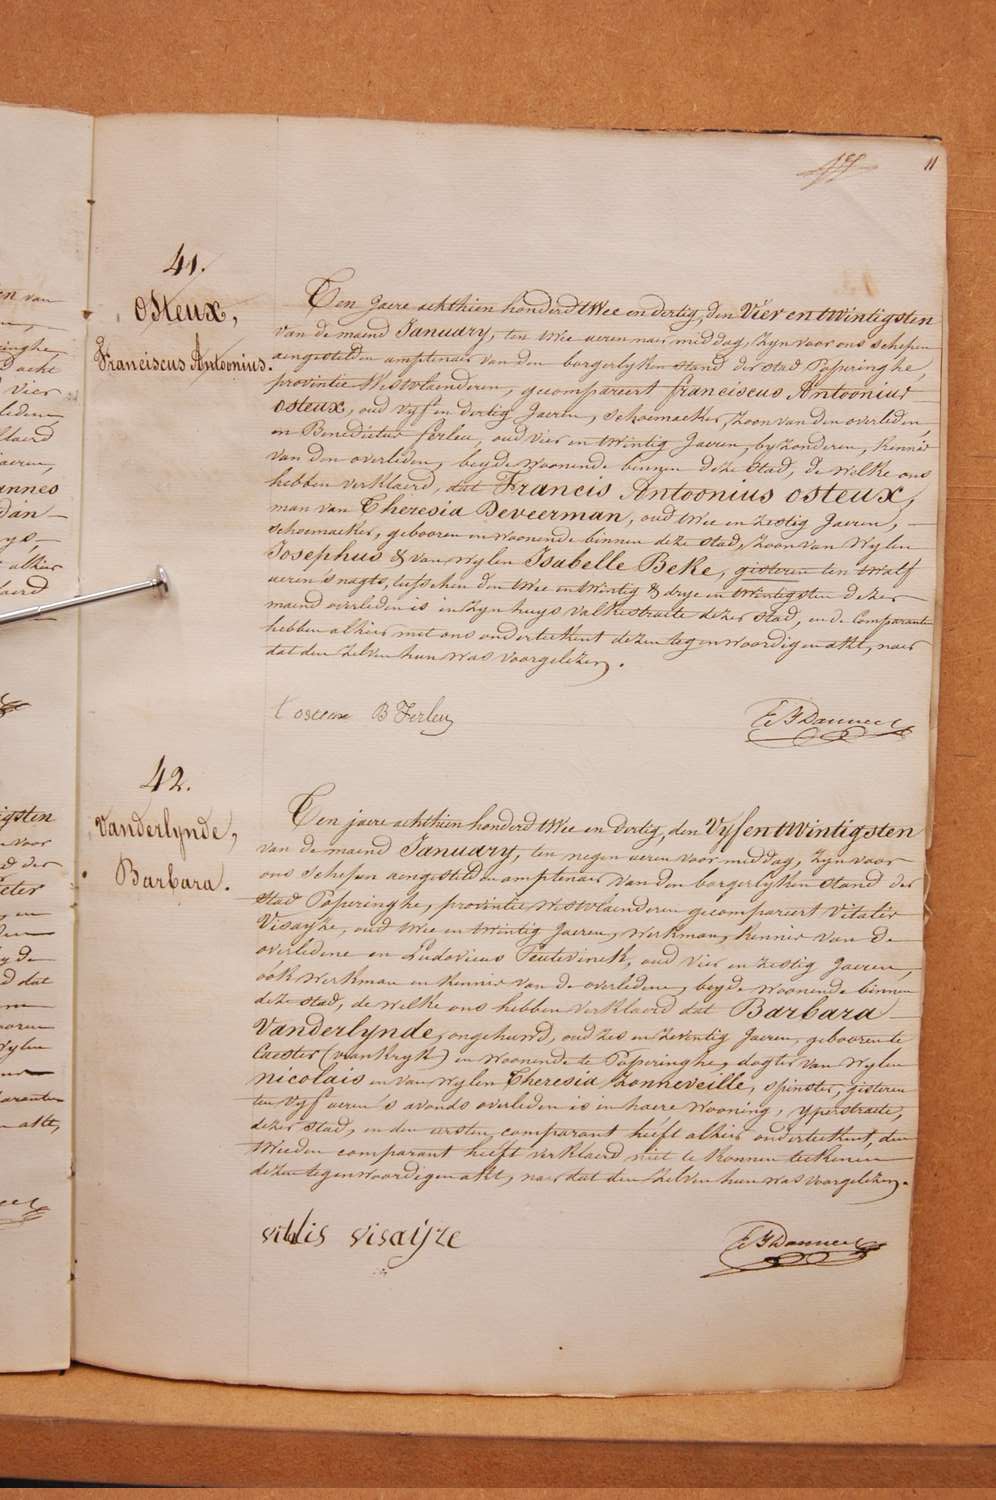 11
41.
Osteux,
Franciscus Antoonius.
Ten jaere achthien honderd twee en dertig, den Vier en twintigsten
van de maend January, ten twee ueren naer middag, zyn voor ons schepen
aengestelden amptenaer van den borgerlyken stand der stad Poperinghe,
provintie Westvlaenderen, gecompareert franciscus Antoonius
osteux, oud vyf en dertig Jaeren, schoemaeker, zoon van den overleden,
en Benedictus ferleu, oud vier en twintig Jaeren, byzonderen, kennis
van den overleden, beyde woonende binnen deze stad, de welke ons
hebben verklaerd, dat Francis Antoonius osteux,
man van Theresia Deveerman, oud twee en zestig Jaeren,
schoemaeker, gebooren en woonende binnen deze stad, zoon van wylen
Josephus & van wylen Isabelle Beke, gisteren ten twalf
ueren s'nagts, tusschen den twee en twintig & drye en twintigsten dezer
maend overleden is in zyn huys valkestraete dezer stad, en de Comparanten
hebben alhier met ons onderteekent dezen tegenwoordigen akt, naer
dat den zelven hun was voorgelezen.
f osteux B Ferleu
42.
Vanderlynde,
Barbara.
Ten jaere achthien honderd twee en dertig, den Vyfentwintigsten
van de maend January, ten negen ueren voor middag, zyn voor
ons schepen aengestelden amptenaer van den borgerlyken stand der
stad Poperinghe, provintie Westvlaenderen gecompareert vitalis
Visaÿze, oud twee en twintig Jaeren, werkman, kennis van de
overledene en Ludovicus Teutevinck, oud vier en zestig Jaeren,
ook werkman en kennis van de overledene, beyde woonende binnen
deze stad, de welke ons hebben verklaerd dat Barbara
Vanderlynde, ongehuwd, oud zes en zeventig Jaeren, gebooren te
Caester (vrankryk) en woonende te Poperinghe, dogter van wylen
nicolais en van wylen Theresia Zonneveille, spinster, gisteren
ten vyf ueren s avonds overleden is in haere wooning, yperstraete,
dezer stad, en den eersten comparant heeft alhier onderteekent, den
tweeden comparant heeft verklaerd niet te konnen teekenen
dezen tegenwoordigen akt, naer dat den zelven hun was voorgelezen.
vitalis visaÿze